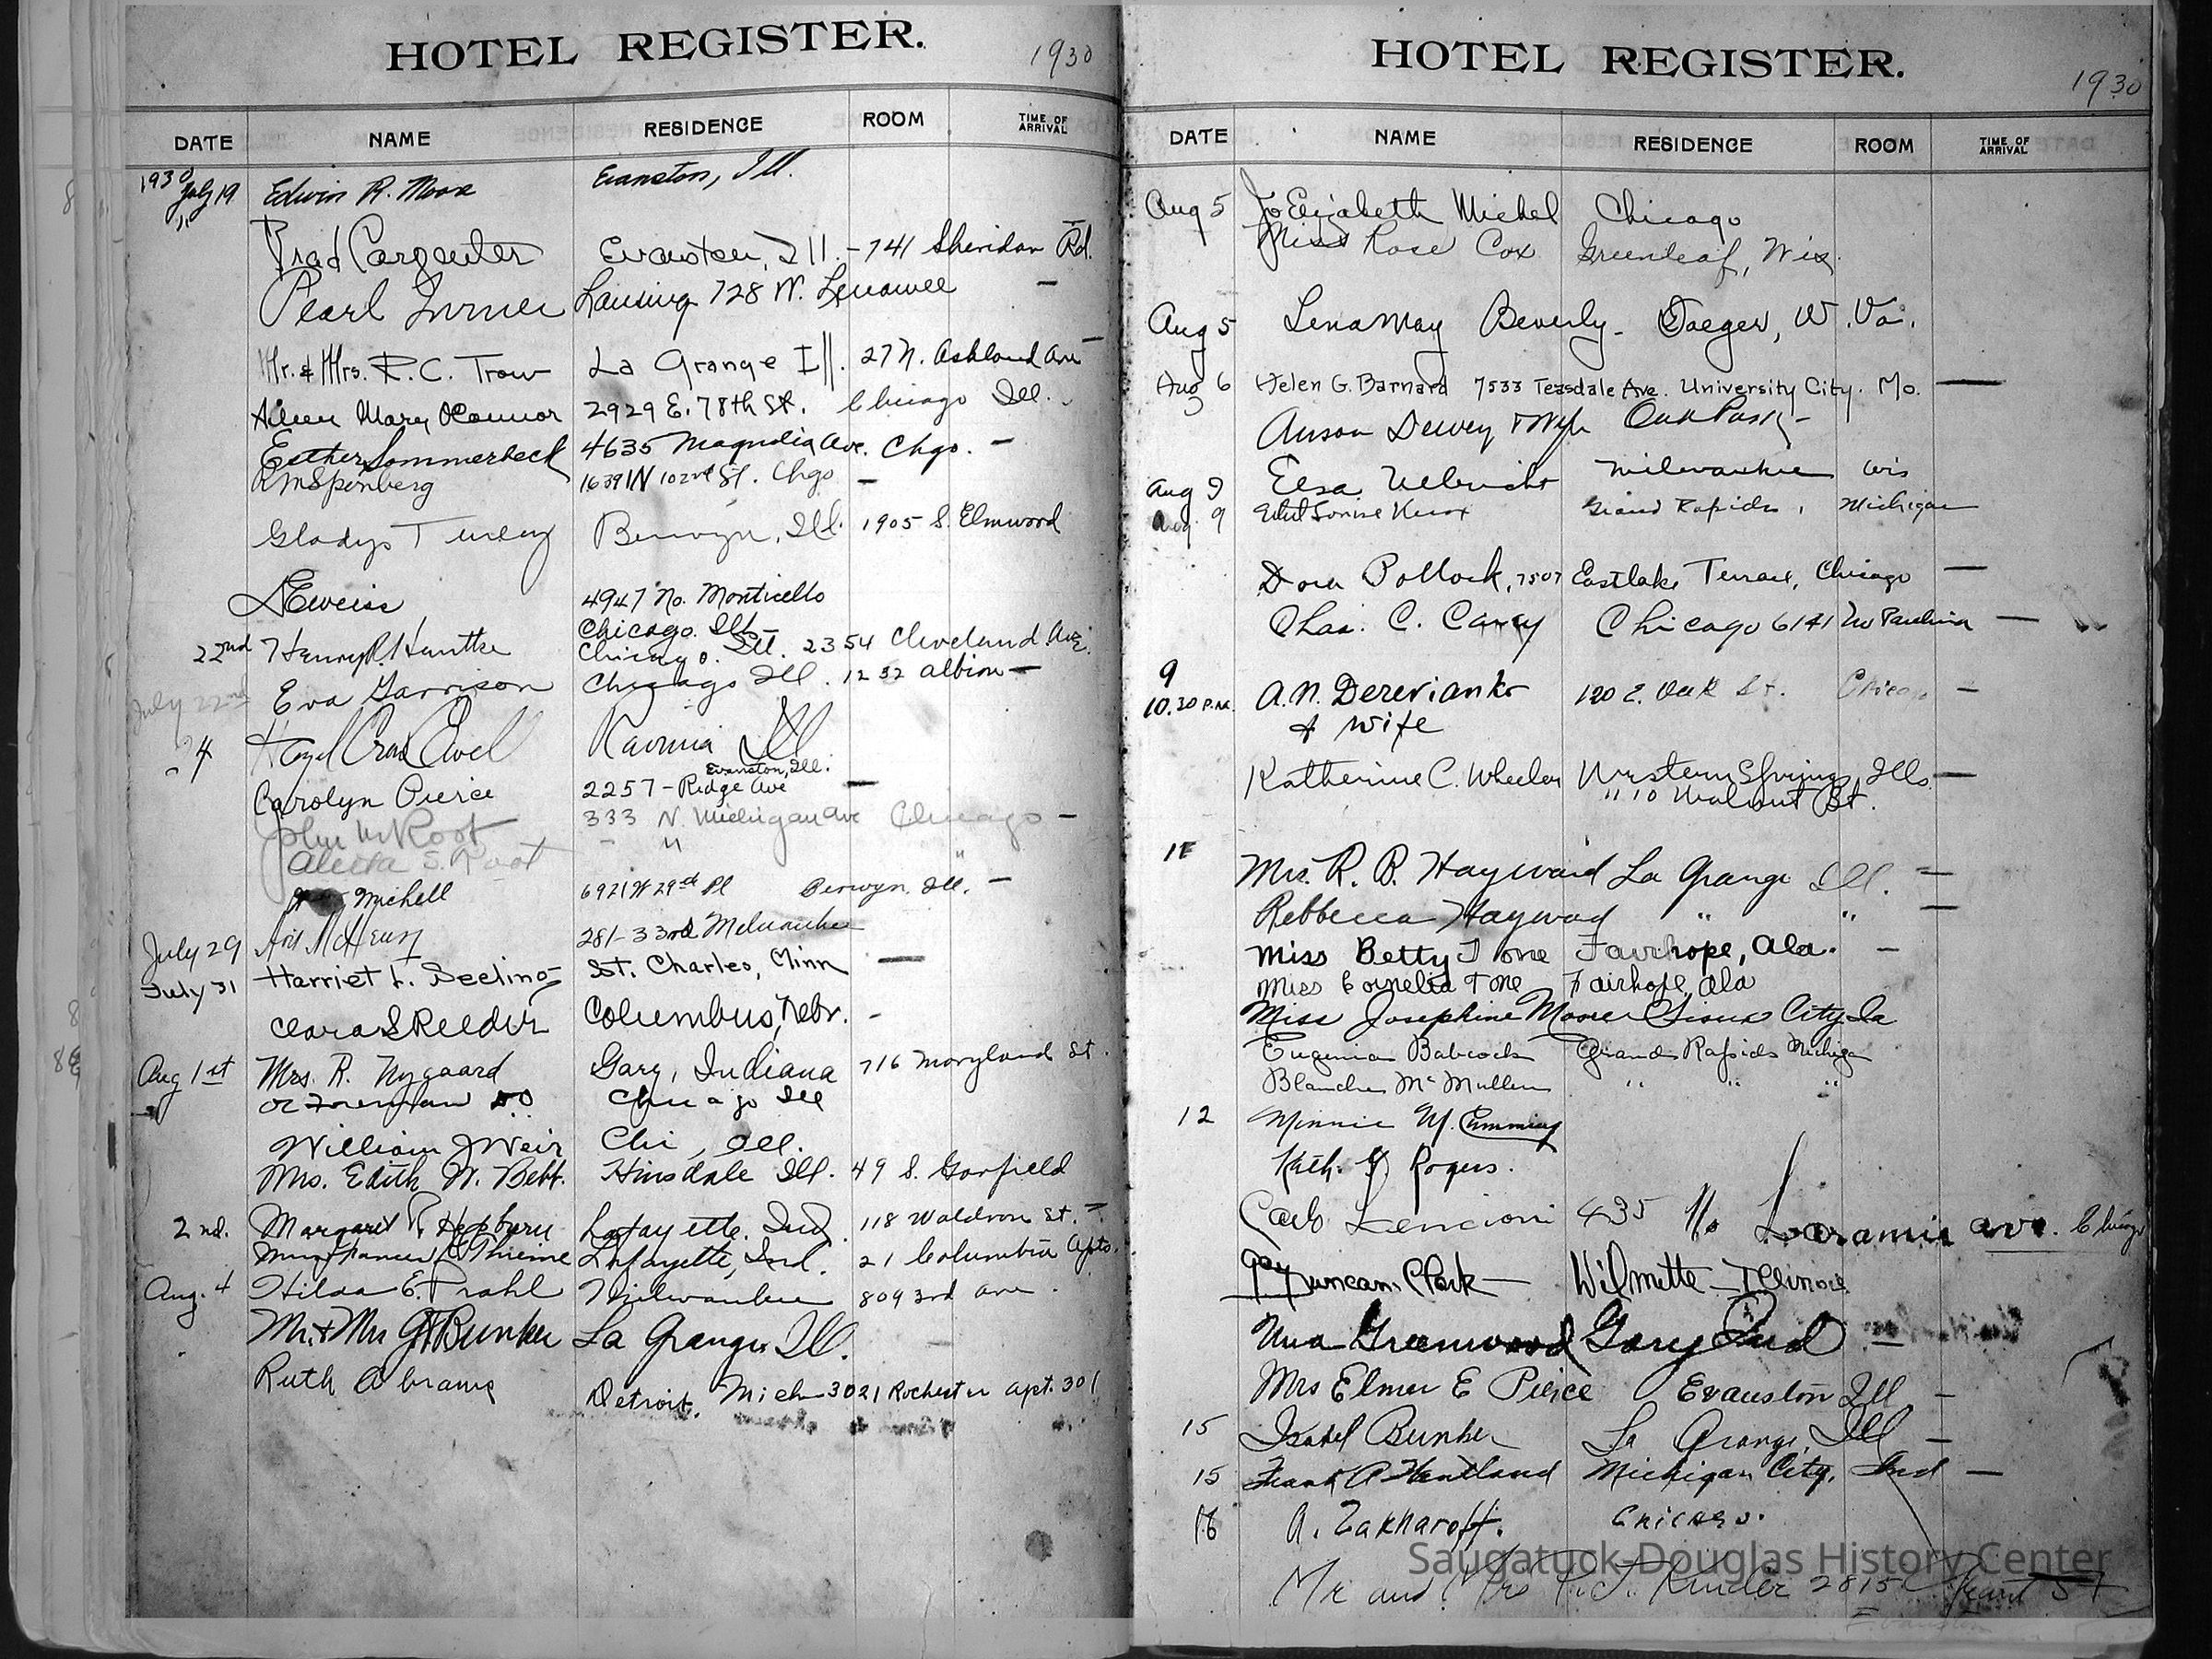 HOTEL REGISTER.
1930
DATE NAME RESIDENCE ROOM TIME OF ARRIVAL
1930 July 19 Edwin R. Moore Evanston, Ill.
" Brad Carpenter Evanston, Ill. - 741 Sheridan Rd.
Pearl Turner Lansing 728 W. Lenawee -
Mr. & Mrs. R. C. Trow La Grange Ill. 27 N. Ashland Ave
Aileen Mary O'Connor 2929 E. 78th St. Chicago Ill.
Esther Sommerbeck 4635 Magnolia Ave. Chgo. -
R M Spinberg 1639 W 102nd St. Chgo -
Gladys Turley Berwyn, Ill. 1905 S. Elmwood
4947 No. Monticello
Chicago. Ills-
22nd Henry R. Chicago. Ill. 2354 Cleveland Ave.
July 22nd Eva Garrison Chicago Ill. 1232 Albion -
24 Ravinia Ill
Evanston, Ill.
Carolyn Pierce 2257 - Ridge Ave -
John W Root 333 N. Michigan Ave Chicago -
S. Root " "
Michell 6921 W 29th Pl Berwyn. Ill. -
July 29 281-33rd Milwaukee
July 31 Harriet L. Seeling St. Charles, Minn -
Clara S Reeder Columbus, Nebr. -
Aug 1st Mrs. R. Nygaard Gary, Indiana 716 Maryland St.
Foreman Chicago Ill
William J Weir Chi, Ill.
Mrs. Edith W. Bebb. Hinsdale Ill. 49 S. Garfield
2nd. Margaret R Hepburn Lafayette. Ind. 118 Waldron St. -
Thieme Lafayette, Ind. 21 Columbia Apts.
Aug. 4 Hilda E. Prahl Milwaukee 809 3rd Ave.
Mr. & Mrs Bunker La Grange Ill.
Ruth Abrams Detroit, Mich - 3021 Rochester apt. 301
HOTEL REGISTER.
1930
DATE NAME RESIDENCE ROOM TIME OF ARRIVAL
Aug 5 Jo Elizabeth Michel Chicago
Miss Rose Cox Greenleaf, Wis.
Aug 5 Lena May Beverly - Jaeger, W. Va.
Aug 6 Helen G. Barnard 7533 Teasdale Ave. University City. Mo. -
Anson Dewey & Wife Oak Park -
Aug 9 Elsa Ulbricht Milwaukee Wis
Aug. 9 Grand Rapids, Michigan
Dora Pollock, 7507 Eastlake Terrace, Chicago -
Chas. C. Carey Chicago 6141 No Paulina -
9
10.30 P.M. A. N. Derevianko 120 E. Oak St. Chicago -
& wife
Katherine C. Wheeler Western Springs, Ills. -
" 10 Walnut St.
11 Mrs. R. B. Hayward La Grange Ill. -
Rebbecca Hayward " " -
Miss Betty Tone Fairhope, Ala. -
Miss Cornelia Tone Fairhope, Ala
Miss Josephine Moore Sioux City Ia
Eugenia Babcock Grand Rapids Michigan
Blanche McMullen " " "
12 Minnie M. Cumming
Kath. Rogers.
Carlo Lencioni 435 No Laramie ave. Chicago
Gay
Duncan Clark - Wilmette - Illinois
Una Greenwood Gary Ind -
Mrs Elmer E Pierce Evanston Ill -
15 Isabel Bunker La Grange, Ill -
15 Frank A Hentland Michigan City, Ind -
16 A. Zakharoff. Chicago.
Mr and Mrs Kinder 2815 Grant St
Evanston
Saugatuck-Douglas History Center